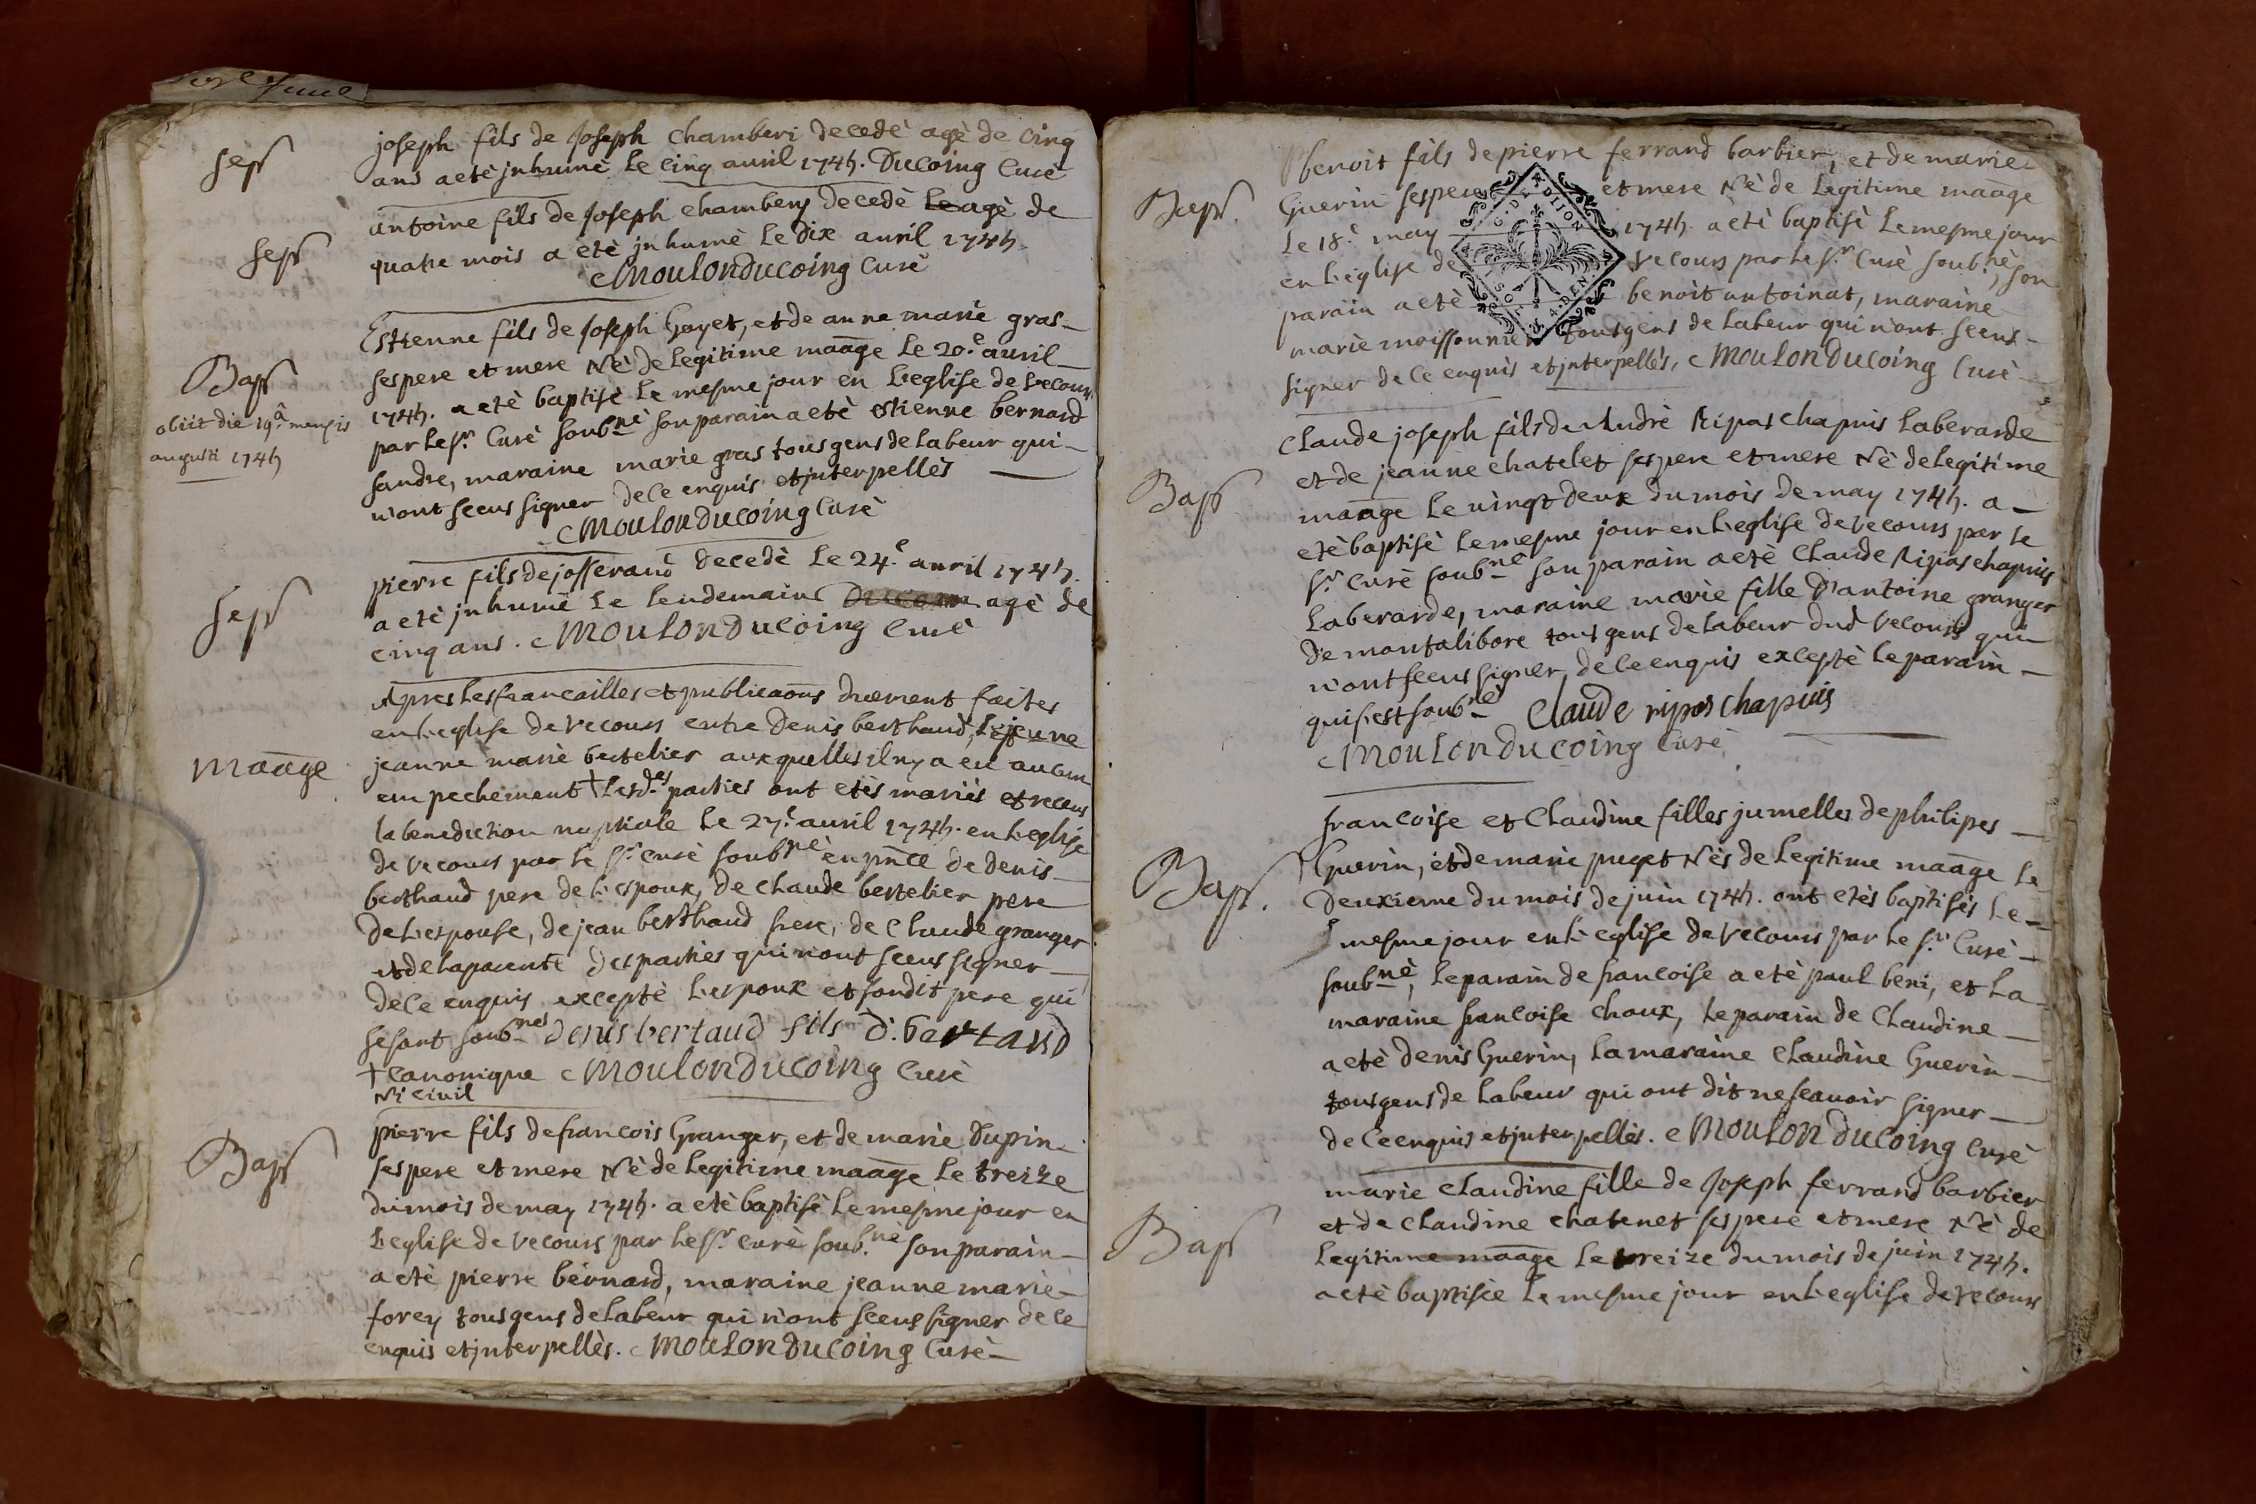 Sep
joseph fils de Joseph Chamberi decedè agè de cinq
ans a etè jnhumè Le cinq avril 1745. Ducoing Curè
Sep
antoine fils de Joseph chambery decedè Le agè de
quatre mois a etè jnhumè Le Dix avril 1745.
Moulonducoing Curè
Bap
obiit die 19.a mensis
augusti 1745
Estienne fils de Joseph Goyet, et de anne marie gras
ses pere et mere Nè de Legitime maage Le 20.e avril
1745. a etè baptisè Le mesme jour en L'eglise de Vecours
par Le Sr. Curè soubnè son parain a etè estienne bernard
Sandre, maraine marie gras tous gens de Labeur qui
n'ont sceus signer de Ce enquis et jnterpellès
Moulonducoing Curè
Sep
pierre fils de josserand decedè Le 24.e avril 1745.
a etè jnhumè Le Lendemain agè de
cinq ans. Moulonducoing Curè
maage
Apres Les fiancailles et publicaons duement faites
en L'eglise de Vecours entre Denis berthaud, Lejeune
jeanne marie bertelier auxquelles il n'y a eu aucun
empechement + Lesd.es parties ont etès mariès et receus
la benediction nuptiale Le 27.e avril 1745. en L'eglise
de Vecours par Le Sr. Curè soubnè en pnce de denis
berthaud pere de L'espoux, de Claude bertelier pere
de L'espouse, de jean berthaud frere, de Claude granger
et de La parente des parties qui n'ont sceus signer
de Ce enquis exceptè L'espoux et sondit pere qui
se sont soubnes denis bertaud fils D. bertaud
+ Canonique Moulonducoing Curè
Ni Civil
Bap
pierre fils de francois Granger, et de marie Dupin
ses pere et mere Nè de Legitime maage Le treize
du mois de may 1745. a etè baptisè Le mesme jour en
L'eglise de Vecours par Le Sr. Curè soub.nè son parain
a etè pierre bernard, maraine jeanne marie
forey tous gens de Labeur qui n'ont sceus signer de Ce
enquis et jnterpellès. Moulonducoing Curè
Bap.
benoit fils de pierre ferrand barbier, et de marie
Guerin ses pere et mere Nè de Legitime maage
Le 18.e may 1745. a etè baptisè Le mesme jour
en L'eglise de Vecours par Le Sr. Curè soub.nè, son
parain a etè benoit antoinat, maraine
marie moissonnier tous gens de Labeur qui n'ont sceus
signer de Ce enquis et jnterpellès, Moulonducoing Curè
Bap
Claude joseph fils de Andrè Ripas chapuis Laberarde
et de jeanne chatelet ses pere et mere Nè de Legitime
maage Le vingt deux du mois de may 1745. a
etè baptisè Le mesme jour en L'eglise de Vecours par Le
Sr. Curè soubnè son parain a etè Claude Ripas chapuis
Laberarde, maraine marie fille d'antoine granger
de montalibore tous gens de Labeur dud Vecours qui
n'ont sceus signer de Ce enquis exceptè Le parain
qui s'est soubnè Claude ripas chapuis
Moulonducoing Curè
Bap.
francoise et Claudine filles jumelles de philipes
Guerin, et de marie puget Nès de Legitime maage Le
Deuxieme du mois de juin 1745. ont etès baptisès Le
mesme jour en L'eglise de Vecours par Le Sr. Curè
soubnè, Le parain de francoise a etè paul beni, et La
maraine francoise Choux, Le parain de Claudine
a etè denis Guerin, La maraine Claudine Guerin
tous gens de Labeur qui ont dit ne scavoir signer
de Ce enquis et jnterpellès. Moulonducoing Curè
Bap
marie Claudine fille de Joseph ferrand barbier
et de Claudine chatenet ses pere et mere Nè de
Legitime maage Le treize du mois de juin 1745.
a etè baptisèe Le mesme jour en L'eglise de Vecours